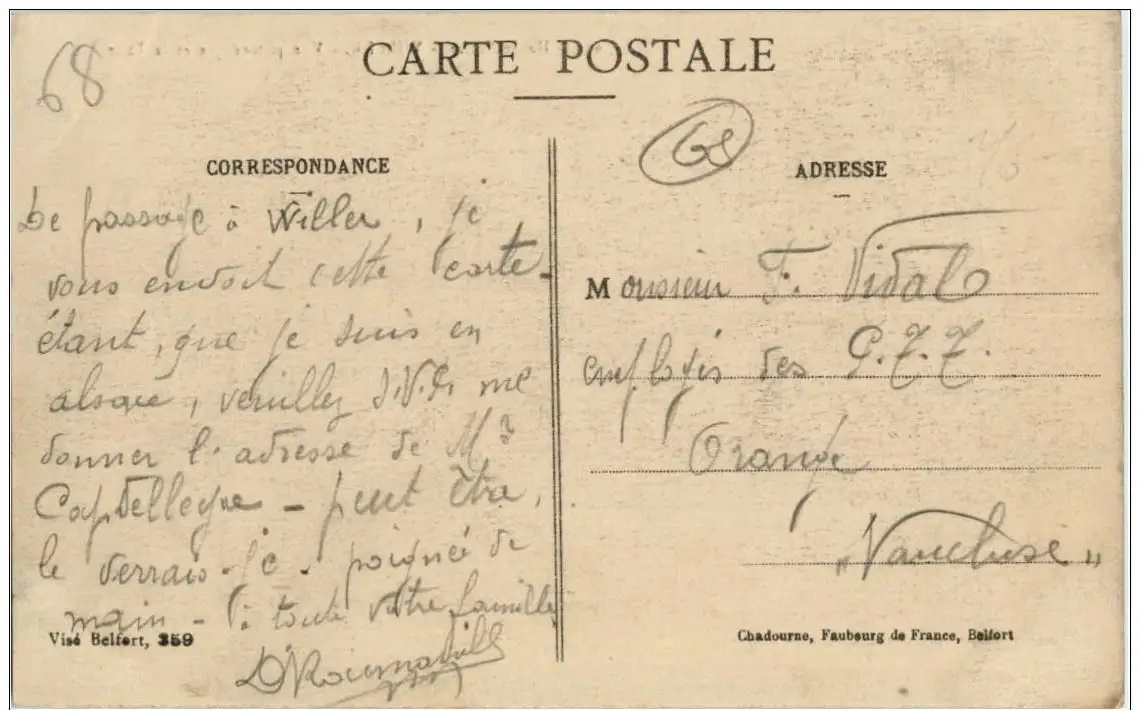 68
CARTE POSTALE
68
CORRESPONDANCE
De passage à Willer, je
vous envoit cette carte
étant, que je suis en
alsace, veuillez S.V.P. me
donner l'adresse de Mr
Capdellegue - peut être,
le verrais-je. poignée de
main - à toute votre famille
Visé Belfort, 359
ADRESSE
Monsieur F. Vidal
employés des P.T.T.
Orange
"Vaucluse"
Chadourne, Faubourg de France, Belfort